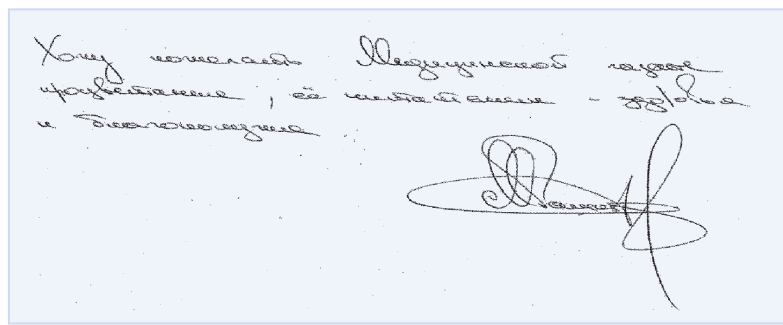 Хочу пожелать Медицинской газете
процветания, её читателям – здоровья
и благополучия